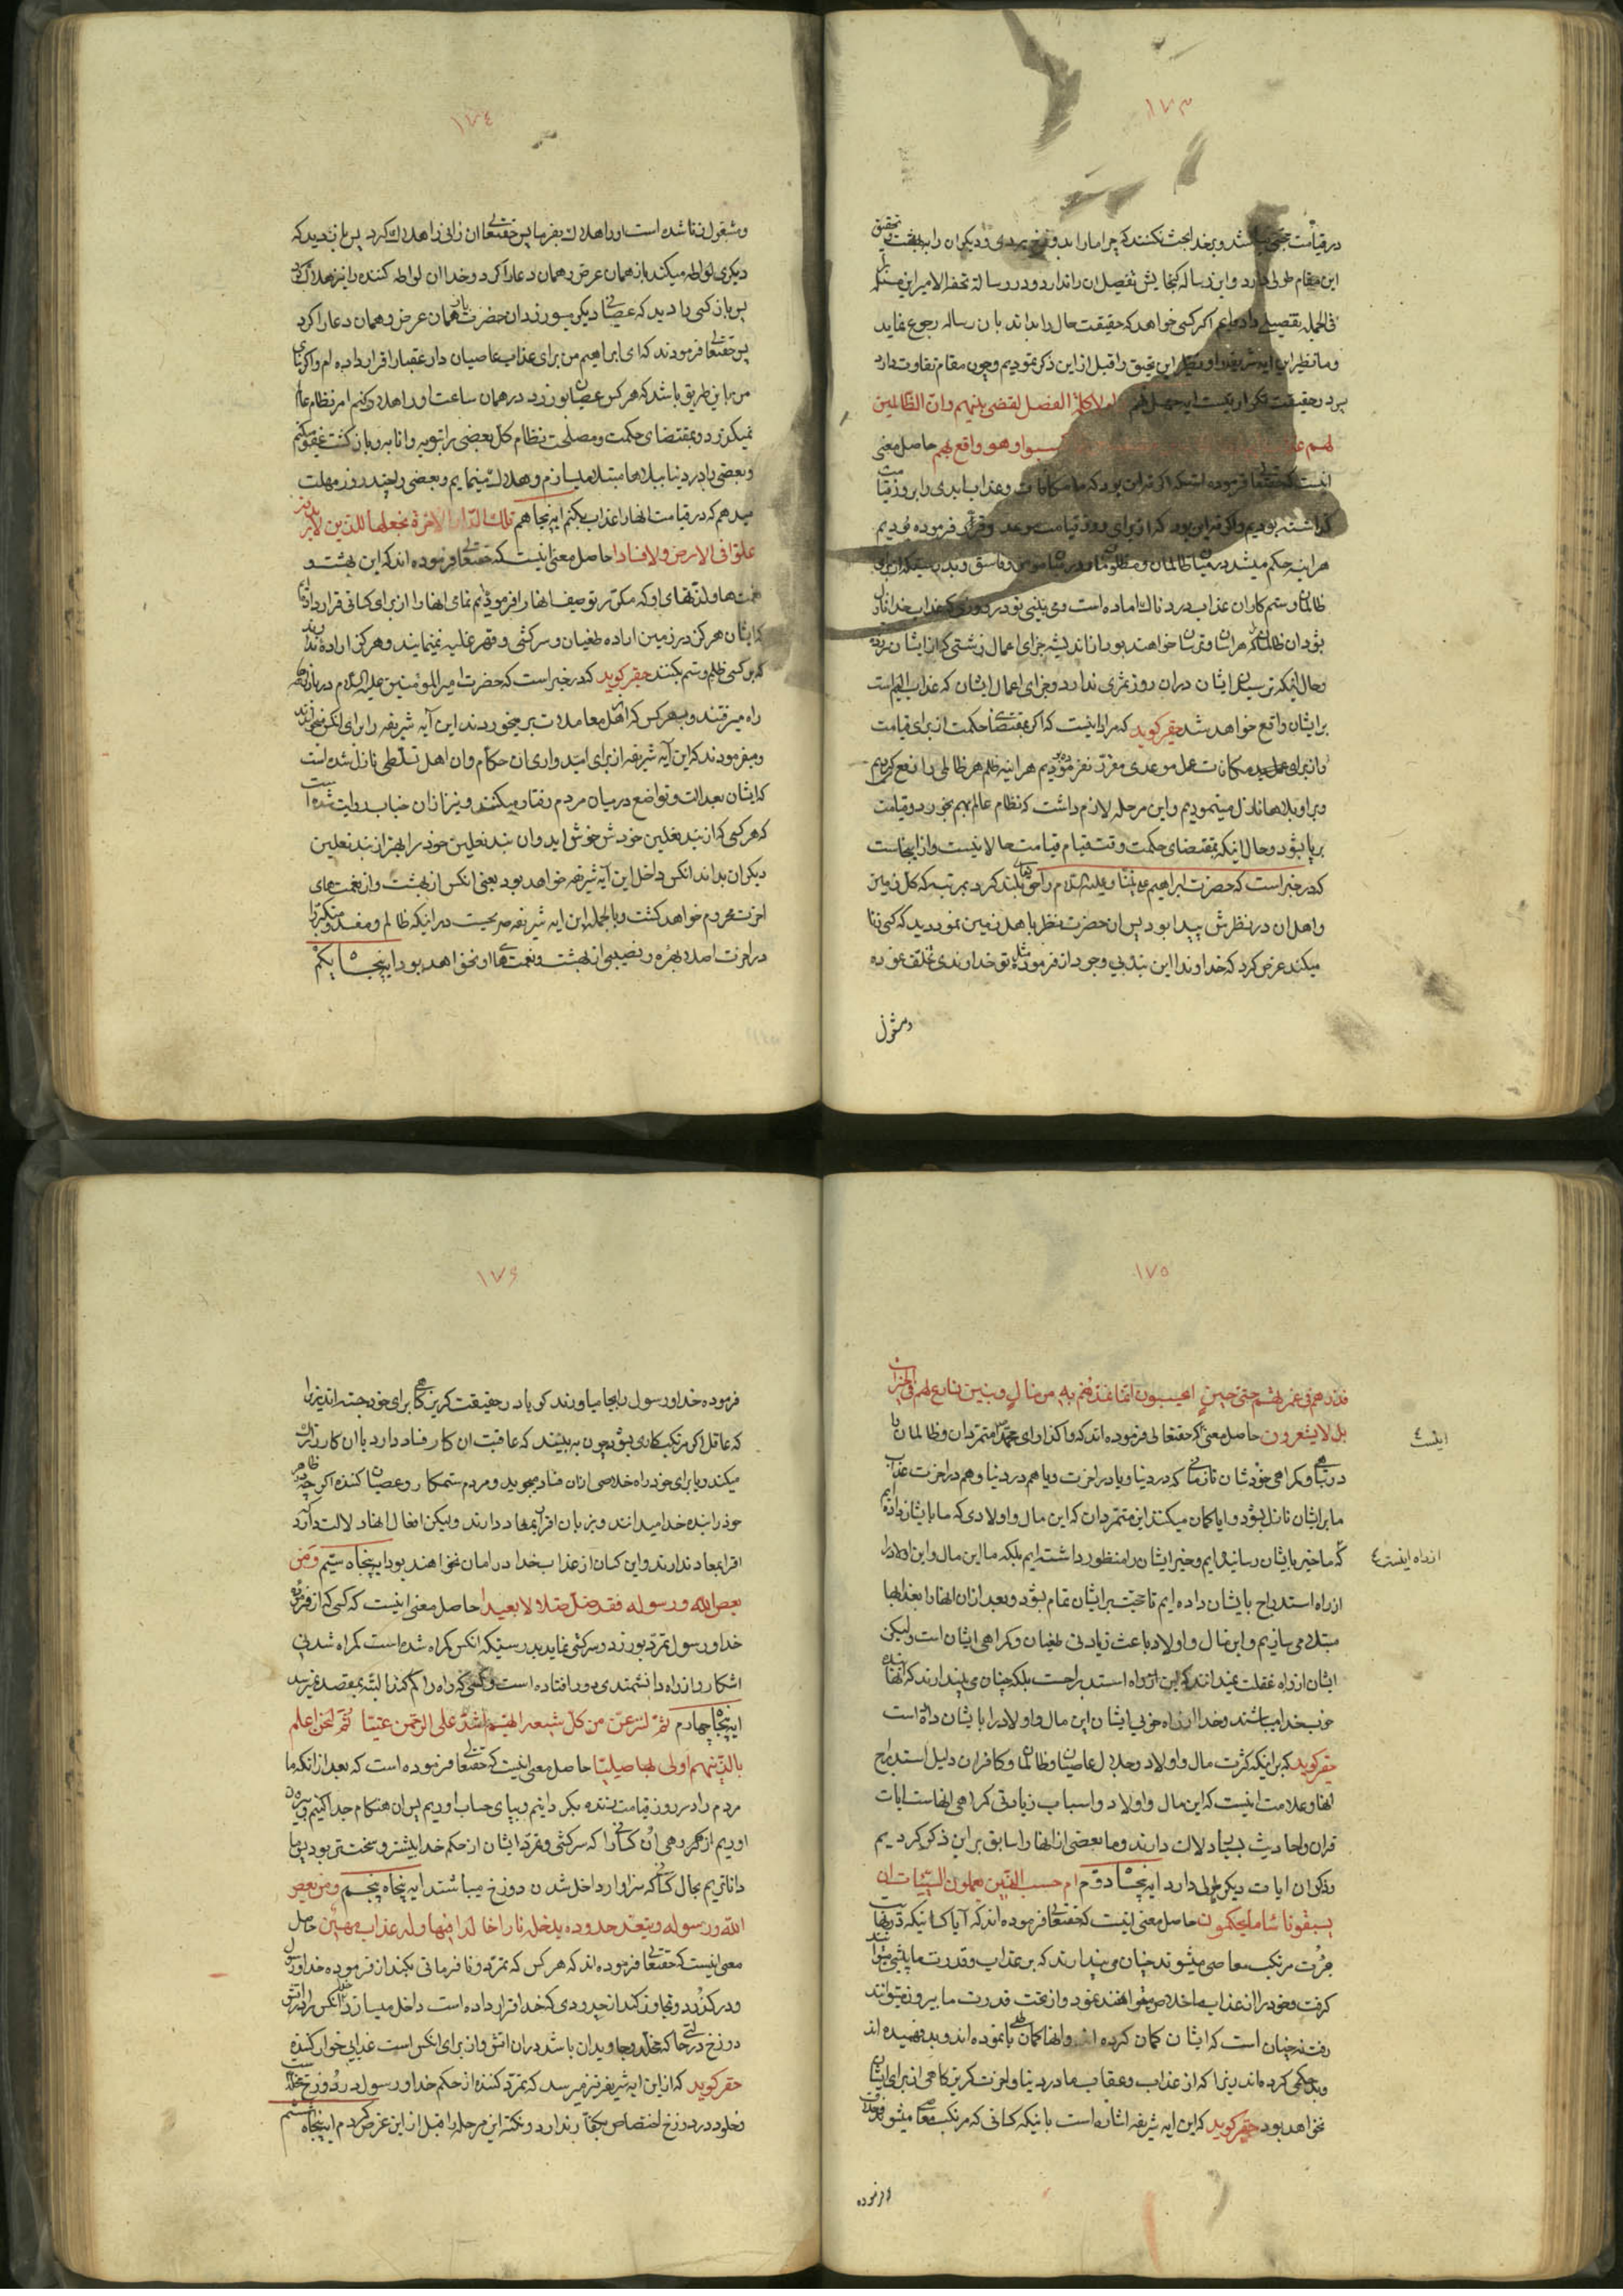 ١٧٣
در قیامت حجتی نباشد و بر خدا بحث نکنند که چرا ما را بدوزخ بردی و دیکران را ببهشت تحقیق
این مقام طولی دارد و این رساله کنجایش تفصیل ان را ندارد و در رسالهٔ تحفة الامیر این مسئله را
فی الجمله تفصیلی داده‌ایم اکر کسی خواهد که حقیقت حال را بداند بان رساله رجوع نماید
و ما نظیر این ایه شریفه را و نظیر این تحقیق را قبل از این ذکر نمودیم و چون مقام تفاوت دارد
پس در حقیقت تکرار نیست ایه چهل نهم لولا کلمة الفصل لقضی بینهم و ان الظالمین
لهم کسبوا و هو واقع بهم حاصل معنی
اینست که حقتعالی فرموده است که اکر نه این بود که ما مکافات و عذاب ابدی را بروز قیامت
کذاشته بودیم و اکر نه این بود که از برای روز قیامت موعد و قراری فرموده بودیم
هراینه حکم میشد در میان ظالمان و مظلومان و در میان مومن و فاسق و بدرستیکه از برای
ظالمان و ستم کاران عذاب دردناک اماده است و می بینی تو در روزی که عذاب خدا نازل
بشود ان ظالمان که هراسان و ترسان خواهند بود از اندیشه جزای اعمال زشتی که از ایشان سرزده
و حال انکه ترسیدن ایشان دران روز ثمری ندارد و جزای اعمال ایشان که عذاب الیم است
بر ایشان واقع خواهد شد حقیر کوید که مراد اینست که اکر بمقتضای حکمت از برای قیامت
و از برای عمل بد مکافات عمل موعدی مقرر نفرموده بودیم هراینه ظلم هر ظالمی را دفع کردیم
و بر او بلاها نازل مینمودیم و این مرحله لازم داشت که نظام عالم بهم بخورد و قیامت
برپا بشود و حال اینکه بمقتضای حکمت وقت قیام قیامت حالا نیست و از اینجاست
که در خبر است که حضرت ابراهیم علی نبینا و علیه السلام را حق تعالی بلند کرد بمرتبه که کل زمین
و اهل ان در نظرش پیدا بود پس ان حضرت نظر باهل زمین نمود دید که کسی زنا
میکند عرض کرد که خداوندا این بنده بی وجود از فرمودهٔ مثل تو خداوندی تخلف نموده
و مشغول
١٧٤
و مشغول زنا شده است او را هلاک بفرما پس حقتعالی ان زانی را هلاک کرد پس باز دید که
دیکری لواطه میکند باز همان عرض و همان دعا را کرد و خدا ان لواطه کننده را نیز هلاک کرد
پس باز کسی را دید که عصیانی دیکر میورزد ان حضرت باز همان عرض و همان دعا را کرد
پس حقتعالی فرمودند که ای ابراهیم من برای عذاب عاصیان دار عقبا را قرار داده ام و اکر بنای
من باین طریق باشد که هرکس عصیان بورزد در همان ساعت او را هلاک کنم امر نظام عالم
نمیکذرد و بمقتضای حکمت و مصلحت نظام کل بعضی را بتوبه و انابه و بازکشت عفو میکنم
و بعضی را در دنیا ببلاها مبتلا میسازم و هلاک مینمایم و بعضی را چند روز مهلت
میدهم که در قیامت انها را عذاب بکنم ایه پنجاهم تلک الدار الاخرة نجعلها للذین لا یریدون
علوا فی الارض و لا فسادا حاصل معنی اینست که حقتعالی فرموده اند که این بهشت و
نعمت‌ها و لذتهای او که مکرر توصیف انها را فرموده ایم تمامی انها را از برای کسانی قرار داده‌ایم
که ایشان هرکز در زمین اراده طغیان و سرکشی و قهر و غلبه نمینمایند و هرکز اراده ندارند
که بر کسی ظلم و ستم بکنند حقیر کوید که در خبر است که حضرت امیر المومنین علیه السلام در بازار
راه میرفتند و بهر کس که اهل معاملات بر میخوردند این آیه شریفه را برای انکس میخواندند
و میفرمودند که این آیه شریفه از برای امیدواری ان حکام و ان اهل تسلطی نازل شده است
که ایشان بعدالت و تواضع درمیان مردم رفتار میکنند و نیز از ان جناب روایت شده است
که هر کسی که از بند نعلین خودش خوش اید و ان بند نعلین خود را بهتر از بند نعلین
دیکران بداند انکس داخل این آیه شریفه خواهد بود یعنی انکس از بهشت و از نعمت‌های
اخرت محروم خواهد کشت و بالجمله این ایه شریفه صریحست در اینکه ظالم و مفسد و متکبر را
در اخرت اصلا بهره و نصیبی از بهشت و نعمت‌های او نخواهد بود ایه پنجاه یکم
١٧٥
فذرهم فی غمرتهم حتی حین ایحسبون انما نمدهم به من مال و بنین نسارع لهم فی الخیرات
بل لا یشعرون حاصل معنی که حقتعالی فرموده اند که واکذار ای محمد متمردان و ظالمان را
اینست ٤
در کمراهی خودشان تا زمانی که در دنیا و یا در اخرت و یا هم در دنیا و هم در اخرت عذاب
ما بر ایشان نازل بشود و ایا کمان میکنند این متمردان که این مال و اولادی که ما بایشان داده ایم
که ما خیر بایشان رسانیده‌ایم و خیر ایشان را منظور داشته‌ایم بلکه ما این مال و این اولاد را
از راه اینست ٤
از راه استدراج بایشان داده ایم تا حجت بر ایشان تمام بشود و بعد از ان انها را بعذابها
مبتلا می سازیم و این مال و اولاد باعث زیادتی طغیان و کمراهی ایشان است و لیکن
ایشان از راه غفلت نمیدانند که این از راه استدراجست بلکه چنان می پندارند که انها بنده
خوب خدا میباشند و خدا از راه خوبی ایشان این مال و اولاد را بایشان داده است
حقیر کوید که بر اینکه کثرت مال و اولاد و جلال عاصیان و ظالمان و کافران دلیل استدراج
انها و علامت اینست که این مال و اولاد و اسباب زیادتی کمراهی انهاست ایات
قران و احادیث بسیار دلالت دارند و ما بعضی از انها را سابق بر این ذکر کردیم
و ذکر ان ایات دیکر طولی دارد ایه پنجاه دویم ام حسب الذین یعملون السیئات ان
یسبقونا ساء ما یحکمون حاصل معنی اینست که حقتعالی فرموده اند که آیا کسانیکه
جرئت مرتکب معاصی میشوند چنان می پندارند که بر عذاب و قدرت ما پیشی میتوانند
کرفت و خود را از عذاب ما خلاص میخواهند نمود و از تحت قدرت ما بیرون میتوانند
رفت نه چنان است که ایشان کمان کرده اند و انها کمان باطلی نموده اند و بد فهمیده اند
و بد حکمی کرده‌اند زیرا که از عذاب و عقاب ما در دنیا و اخرت کریز کاهی از برای ایشان
نخواهد بود حقیر کوید که این ایه شریفه اشاره است باینکه کسانی که مرتکب معاصی میشوند و خلاف
فرموده
١٧٦
فرموده خدا و رسول را بجا میاورند کویا در حقیقت کریز کاهی برای خود جسته اند زیرا
که عاقل اکر مرتکب کاری بشود چون به بیند که عاقبت ان کار فساد دارد یا ان کار را ترک
میکند و یا برای خود راه خلاصی از ان فساد میجوید و مردم ستمکار و عصیان کننده اکر چه در ظاهر
خود را بنده خدا میدانند و بزبان اقرار بمعاد دارند و لیکن افعال انها دلالت دارد که
اقرار بمعاد ندارند و این کسان از عذاب خدا در امان نخواهند بود ایه پنجاه سیم و من
یعص الله و رسوله فقد ضل ضلالا بعیدا حاصل معنی اینست که کسی که از فرموده
خدا و رسول تمرد بورزد و سرکشی نماید بدرستیکه انکس کمراه شده است کمراه شدنی
اشکار و از راه دانشمندی دور افتاده است و کسی که راه را کم کند البته بمقصد نمیرسد
ایه پنجاه چهارم ثم لننزعن من کل شیعة ایهم اشد علی الرحمن عتیا ثم لنحن اعلم
بالذین هم اولی بها صلیا حاصل معنی اینست که حقتعالی فرموده است که بعد از انکه ما
مردم را در روز قیامت زنده بکردانیم و بپای حساب اوریم پس ان هنکام جدا کنیم و بیرون
اوریم از هر کروهی ان کسانی را که سرکشی و تمرد ایشان از حکم خدا بیشتر و سخت تر بود پس ما
داناتریم بحال کسانی که سزاوار داخل شدن دوزخ میباشند ایه پنجاه پنجم و من یعص
الله و رسوله و یتعد حدوده یدخله نارا خالدا فیها و له عذاب مهین حاصل
معنی اینست که حقتعالی فرموده اند که هر کس که تمرد و نافرمانی بکند از فرموده خدا و رسول
و در کذرد و تجاوز کند از حدودی که خدا قرار داده است داخل میسازد خدا انکس را در اتش
دوزخ در حالتی که مخلد و جاویدان باشد دران اتش و از برای انکس است عذابی خوار کننده
حقیر کوید که از این ایه شریفه نیز میرسد که تمرد کننده از حکم خدا و رسول در دوزخ مخلد است
و خلود در دوزخ اختصاص بکفار ندارد و نکته این مرحله را قبل از این عرض کردم ایه پنجاه ششم